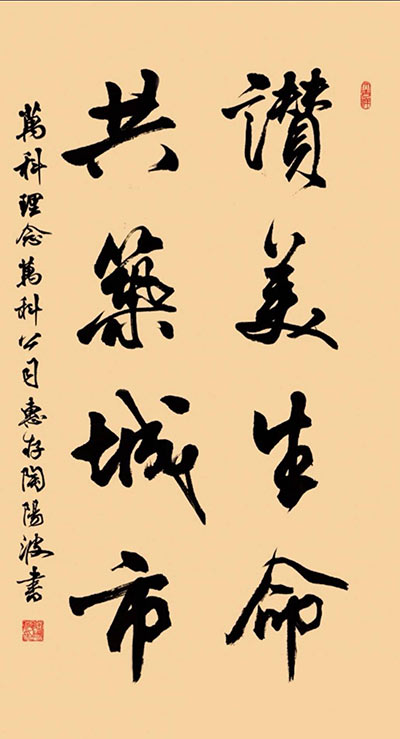 讃美生命
共築城市
萬科理念萬科公司惠存陶陽波書